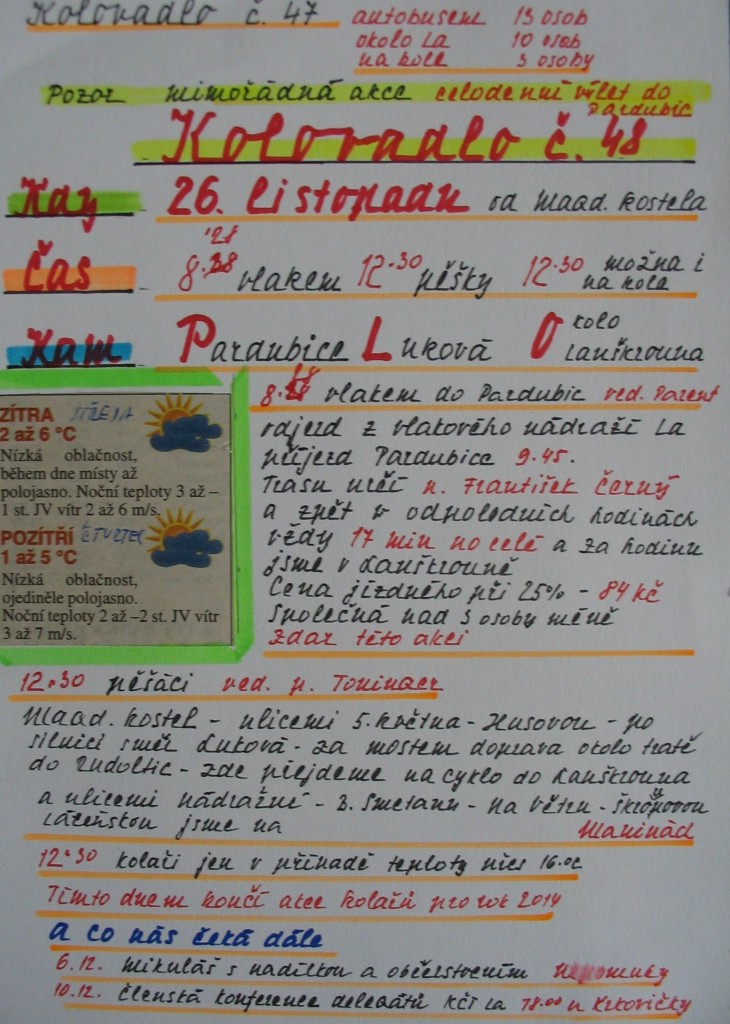 Kolovadlo č. 47
autobusem 13 osob
okolo La 10 osob
na kole 3 osoby
Pozor mimořádná akce celodenní výlet do Pardubic
Kolovadlo č. 48
Kdy 26. listopadu od Maad. kostela
Čas 8.28 vlakem 12.30 pěšky 12.30 možná i na kole
Kam Pardubice Luková Okolo Lanškrouna
8. vlakem do Pardubic ved. Parent
odjezd z vlakového nádraží La
příjezd Pardubice 9.45.
Trasu určí p. František Černý
a zpět v odpoledních hodinách
vždy 17 min po celé a za hodinu
jsme v Lanškrouně
Cena jízdného při 25% - 84 kč
Společná nad 3 osoby méně
Zdar této akci
ZÍTRA STŘEDA
2 až 6 °C
Nízká oblačnost,
během dne místy až
polojasno. Noční teploty 3 až –
1 st. JV vítr 2 až 6 m/s.
POZÍTŘÍ ČTVRTEK
1 až 5 °C
Nízká oblačnost,
ojediněle polojasno.
Noční teploty 2 až –2 st. JV vítr
3 až 7 m/s.
12.30 pěšáci ved. p.
Maad. kostel - ulicemi 5. května - Husovou - po
silnici směr Luková - za mostem doprava okolo tratě
do Rudoltic - zde přejdeme na cyklo do Lanškrouna
a ulicemi nádražní - B. Smetany - Na větru - Škroupovou
jsme na
12.30 kolaři jen v případě teploty více 16.oc
Tímto dnem končí akce kolařů pro rok 2014
a co nás čeká dále
6.12. Mikuláš s nadílkou a občerstvením Nepomuky
10.12. Členská konference delegátů KČT La 18.00 u Krkovičky